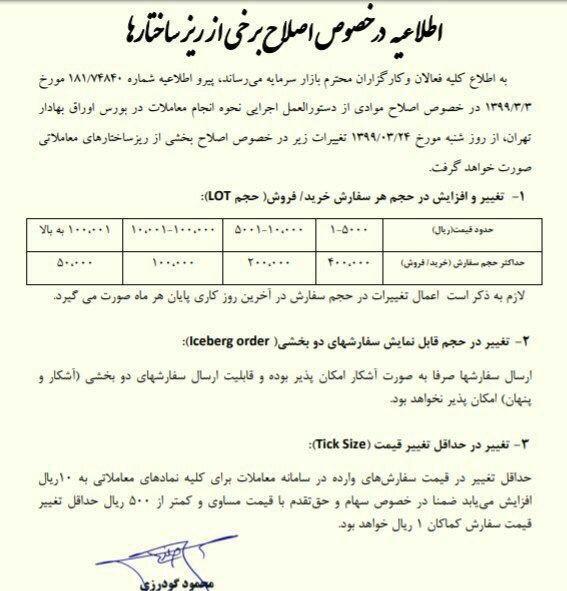 اطلاعیه در خصوص اصلاح برخی از ریز ساختارها
به اطلاع کلیه فعالان وکارگزاران محترم بازار سرمایه می‌رساند، پیرو اطلاعیه شماره ۱۸۱/۷۴۸۴۰ مورخ
۱۳۹۹/۳/۳ در خصوص اصلاح موادی از دستورالعمل اجرایی نحوه انجام معاملات در بورس اوراق بهادار
تهران، از روز شنبه مورخ ۱۳۹۹/۰۳/۲۴ تغییرات زیر در خصوص اصلاح بخشی از ریزساختارهای معاملاتی
صورت خواهد گرفت.
۱- تغییر و افزایش در حجم هر سفارش خرید/ فروش( حجم LOT):
حدود قیمت(ریال) ۱-۵۰۰۰ ۵۰۰۱-۱۰,۰۰۰ ۱۰,۰۰۱-۱۰۰,۰۰۰ ۱۰۰,۰۰۱ به بالا
حداکثر حجم سفارش (خرید/ فروش) ۴۰۰,۰۰۰ ۲۰۰,۰۰۰ ۱۰۰,۰۰۰ ۵۰,۰۰۰
لازم به ذکر است اعمال تغییرات در حجم سفارش در آخرین روز کاری پایان هر ماه صورت می گیرد.
۲- تغییر در حجم قابل نمایش سفارشهای دو بخشی( Iceberg order):
ارسال سفارشها صرفا به صورت آشکار امکان پذیر بوده و قابلیت ارسال سفارشهای دو بخشی (آشکار و
پنهان) امکان پذیر نخواهد بود.
۳- تغییر در حداقل تغییر قیمت (Tick Size):
حداقل تغییر در قیمت سفارش‌های وارده در سامانه معاملات برای کلیه نمادهای معاملاتی به ۱۰ریال
افزایش می‌یابد ضمنا در خصوص سهام و حق‌تقدم با قیمت مساوی و کمتر از ۵۰۰ ریال حداقل تغییر
قیمت سفارش کماکان ۱ ریال خواهد بود.
محمود گودرزی